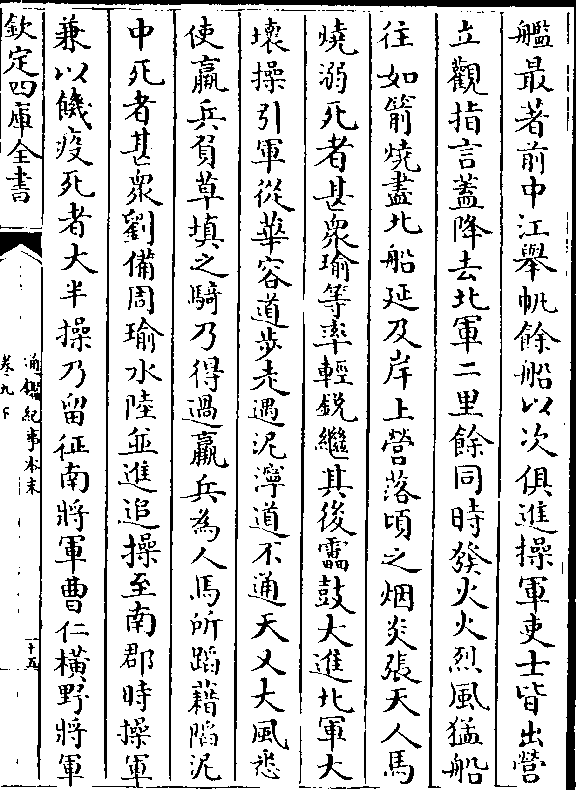 艦最著前中江舉帆餘船以次俱進操軍吏士皆出營
立觀指言蓋降去北軍二里餘同時發火火烈風猛船
往如箭燒盡北船延及岸上營落頃之烟炎張天人馬
燒溺死者甚衆瑜等率輕銳繼其後靁鼓大進北軍大
壞操引軍從華容道步走遇泥濘道不通天又大風悉
使羸兵負草填之騎乃得過羸兵為人馬所蹈藉陷泥
中死者甚衆劉備周瑜水陸並進追操至南郡時操軍
兼以饑疫死者大半操乃留征南將軍曹仁橫野將軍
欽定四庫全書
通鑑紀事本末
卷九下
十五